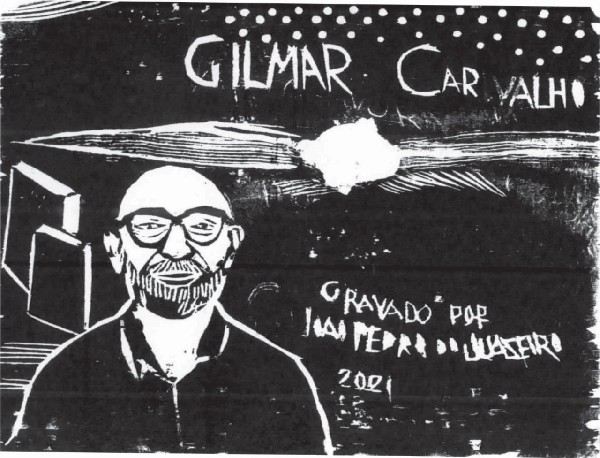 GILMAR CARVALHO
GRAVADO POR
JOAO PEDRO DO JUAZEIRO
2021